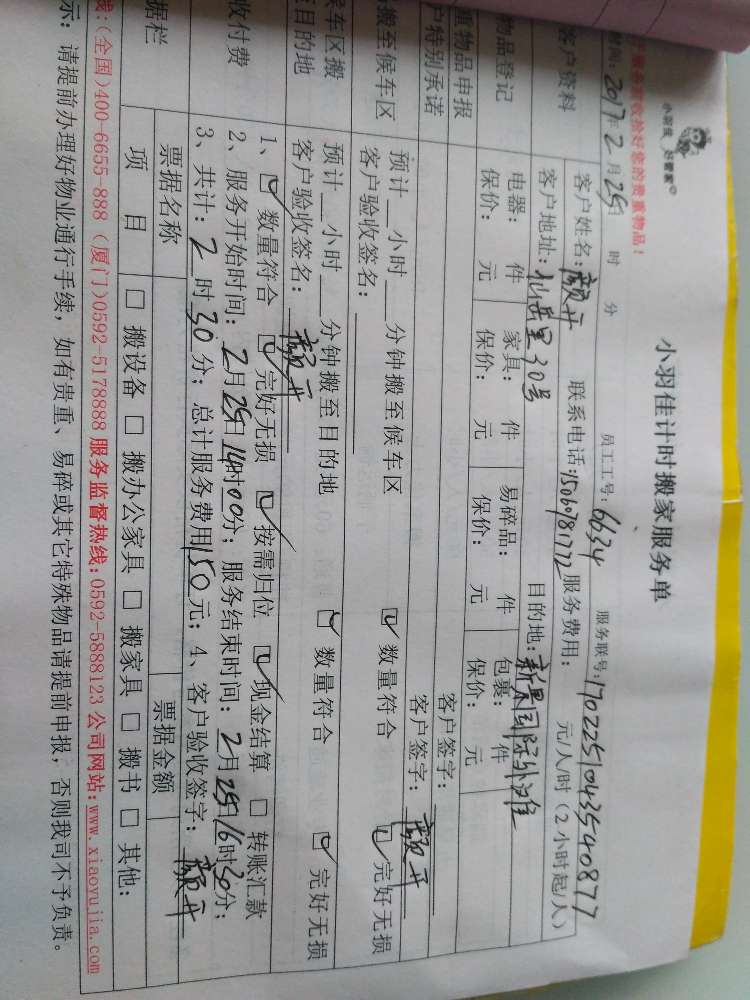 小羽佳 好管家
服务前请收拾好您的贵重物品!
小羽佳计时搬家服务单
时间: 2017年2月25日 时 分 员工工号: 6634 服务联号: 1702251043540877
客户资料 客户姓名: 颜开 联系电话: 15067981772 服务费用: 元/人/时(2小时起/人)
客户地址: 仙岳里30号 目的地: 新景国际外滩
物品登记 电器: 件 家具: 件 易碎品: 件 包裹: 件
保价: 元 保价: 元 保价: 元 保价: 元
重物品申报 客户签字:
户特别承诺 客户签字: 颜开
搬至候车区 预计__小时__分钟搬至候车区 ☑ 数量符合 ☑ 完好无损
客户验收签名:
候车区搬 预计__小时__分钟搬至目的地 ☑ 数量符合 ☑ 完好无损
至目的地 客户验收签名: 颜开
收付费 1、☑ 数量符合 ☑ 完好无损 ☑ 按需归位 ☑ 现金结算 □ 转账汇款
2、服务开始时间: 2月25日14时00分; 服务结束时间: 2月25日16时30分;
3、共计: 2时30分; 总计服务费用150元; 4、客户验收签字: 颜开
据栏 票据名称 票据金额
项 目 □ 搬设备 □ 搬办公家具 □ 搬家具 □ 搬书 □ 其他:
线:(全国)400-6655-888 (厦门)0592-5178888 服务监督热线:0592-5888123 公司网站:www.xiaoyujia.com
示: 请提前办理好物业通行手续, 如有贵重、易碎或其它特殊物品请提前申报, 否则我司不予负责。